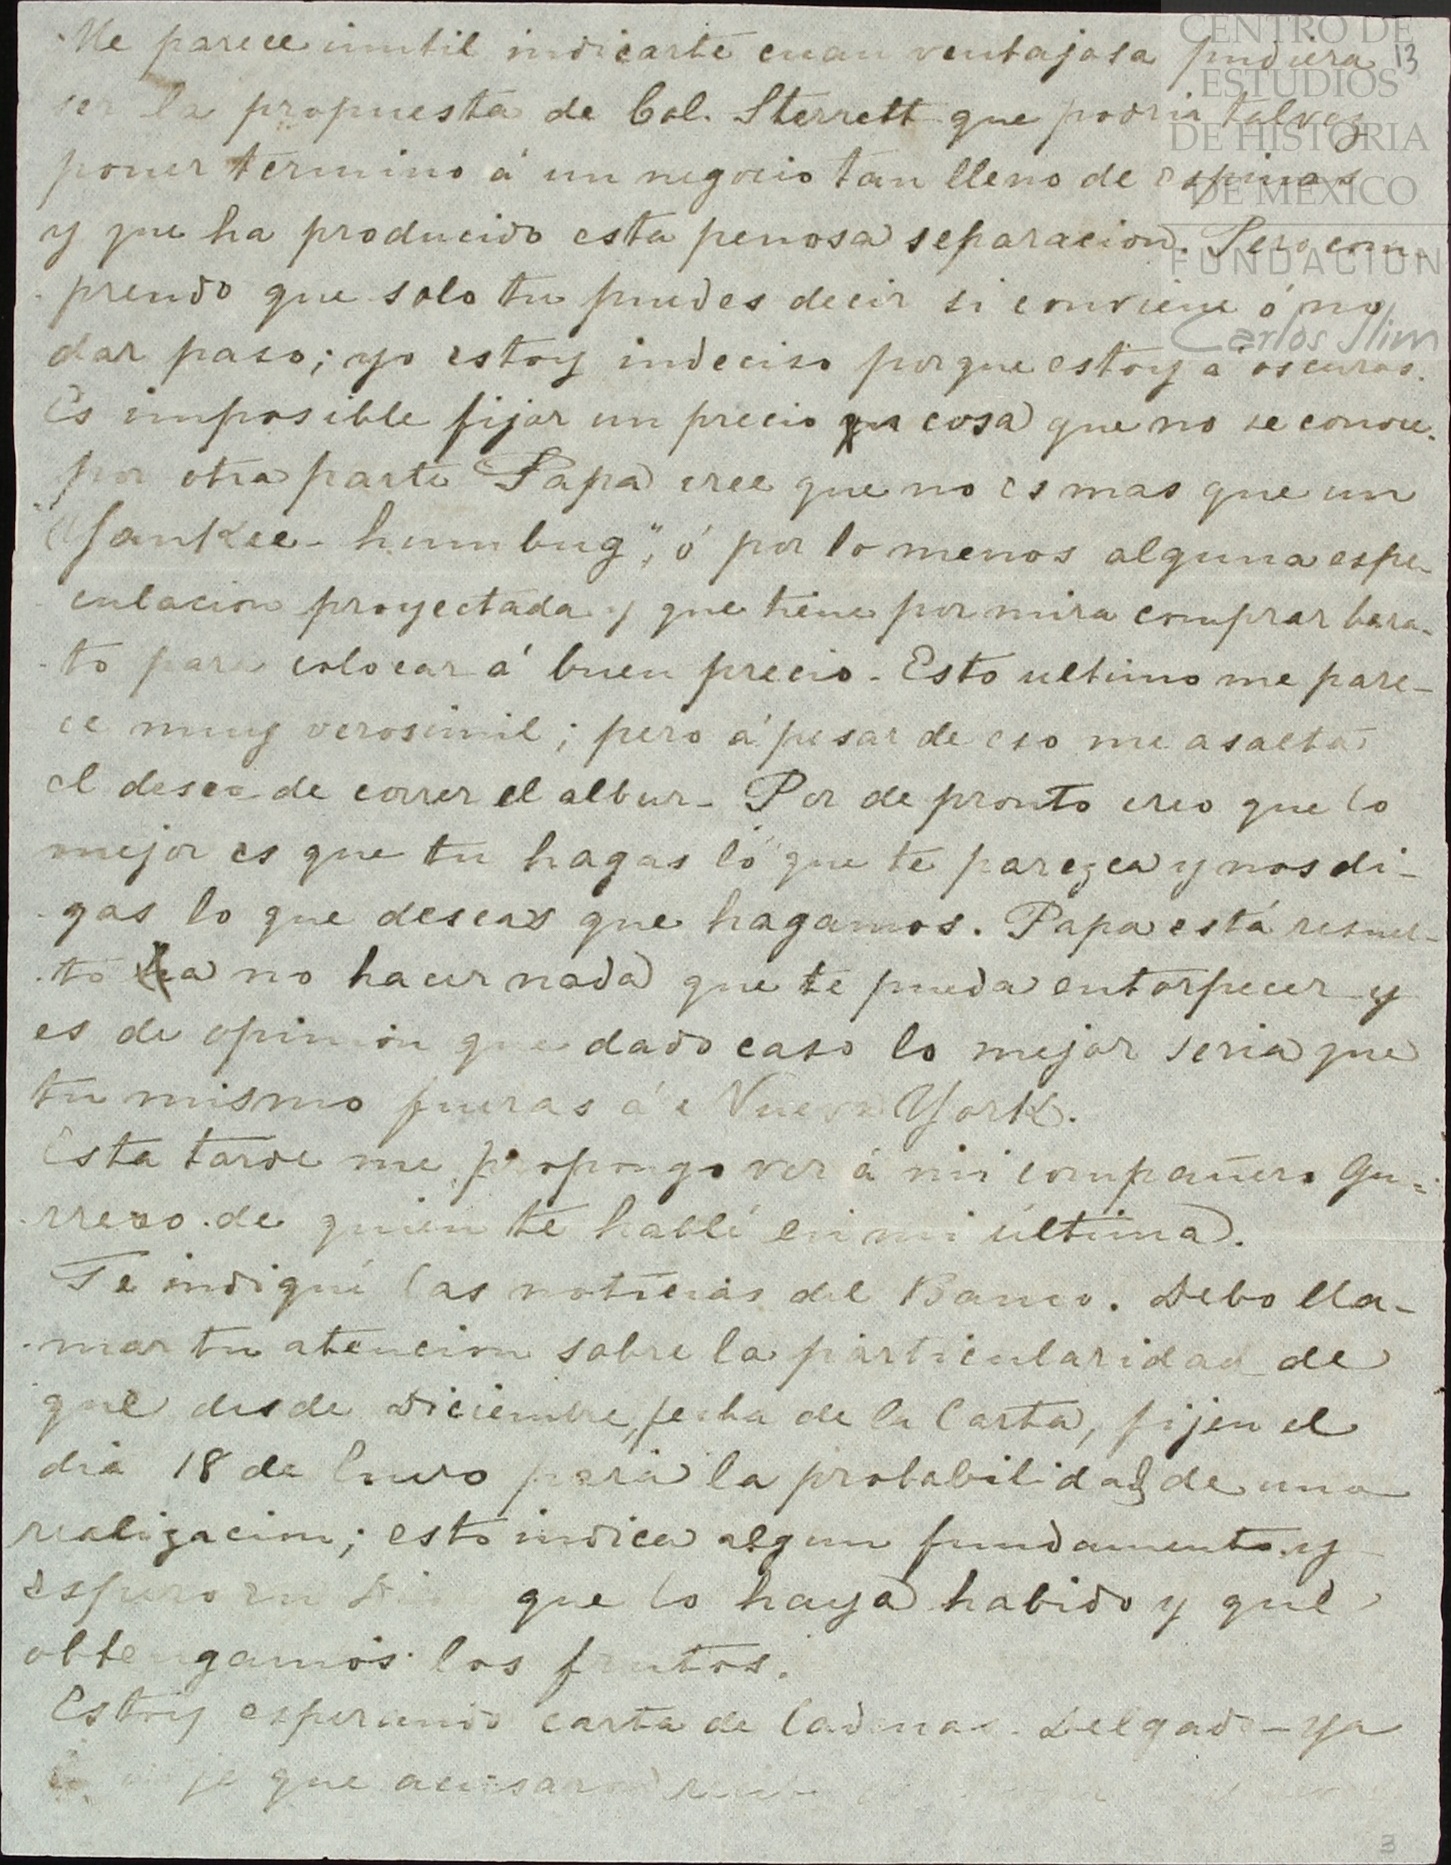 CENTRO DE
ESTUDIOS
DE HISTORIA
DE MEXICO
FUNDACION
Carlos Slim
13
Me parece inutil indicarte cuan ventajosa pudiera
ser la propuesta de Col. Sterrett que podria talvez
poner termino á un negocio tan lleno de espinas
y que ha producido esta penosa separacion. Pero com-
prendo que solo tu puedes decir si conviene ó no
dar paso; yo estoy indeciso porque estoy á oscuras.
Es imposible fijar un precio cosa que no se conoce.
por otra parte Papa cree que no es mas que un
"Yankee-humbug", ó por lo menos alguna espe-
culacion proyectada y que tiene por mira comprar bara-
to para colocar á buen precio. Esto ultimo me pare-
ce muy verosimil; pero á pesar de eso me asalta
el deseo de correr el albur. Por de pronto creo que lo
mejor es que tu hagas lo que te parezca y nos di-
gas lo que deseas que hagamos. Papa está resuel-
to a no hacer nada que te pueda entorpecer y
es de opinion que dado caso lo mejor seria que
tu mismo fueras á Nueva York.
Esta tarde me propongo ver á mi compañero Gu-
rrero de quien te hablé en mi última.
Te indiqué las noticias del Banco. Debo lla-
mar tu atencion sobre la particularidad de
que desde Diciembre, fecha de la Carta, fijen el
dia 18 de Enero para la probabilidad de una
realizacion; esto indica algun fundamento y
espero en Dios que lo haya habido y que
obtengamos los frutos.
Estoy esperando carta de Cadenas. Delgado ya
que acusar
3